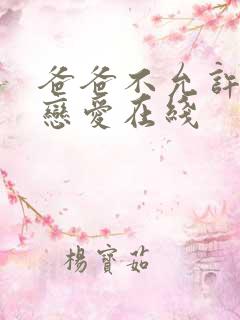 爸爸不允許
戀愛在綫
楊寶茹